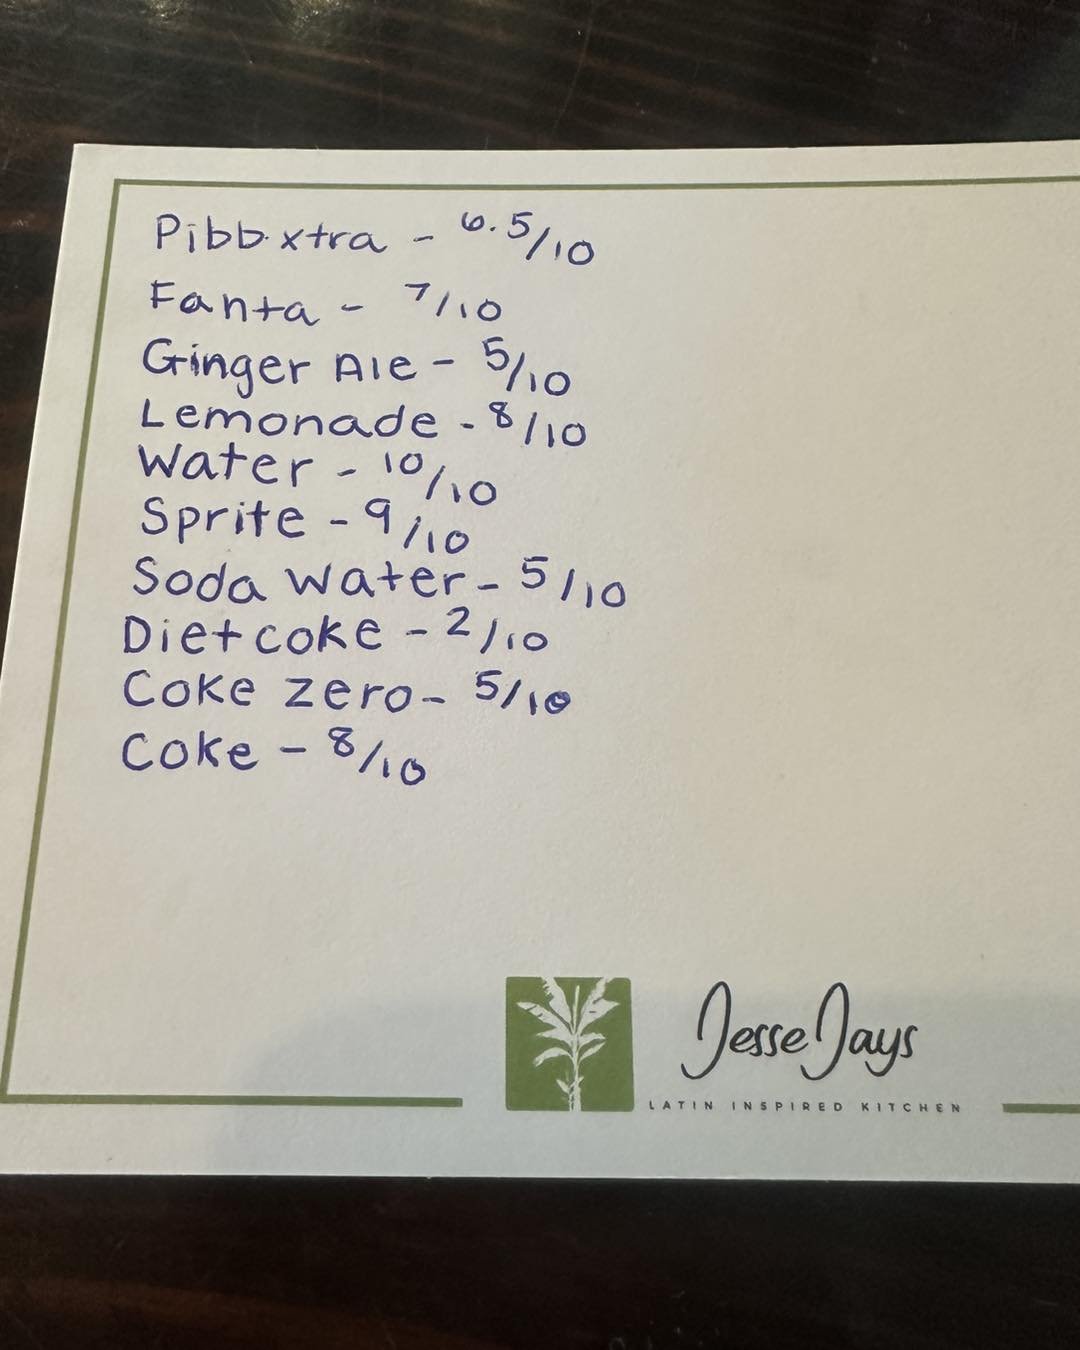 Pibb xtra - 6.5/10
Fanta - 7/10
Ginger Ale - 5/10
Lemonade - 8/10
Water - 10/10
Sprite - 9/10
Soda Water - 5/10
Diet coke - 2/10
Coke zero - 5/10
Coke - 8/10
Jesse Jays
LATIN INSPIRED KITCHEN